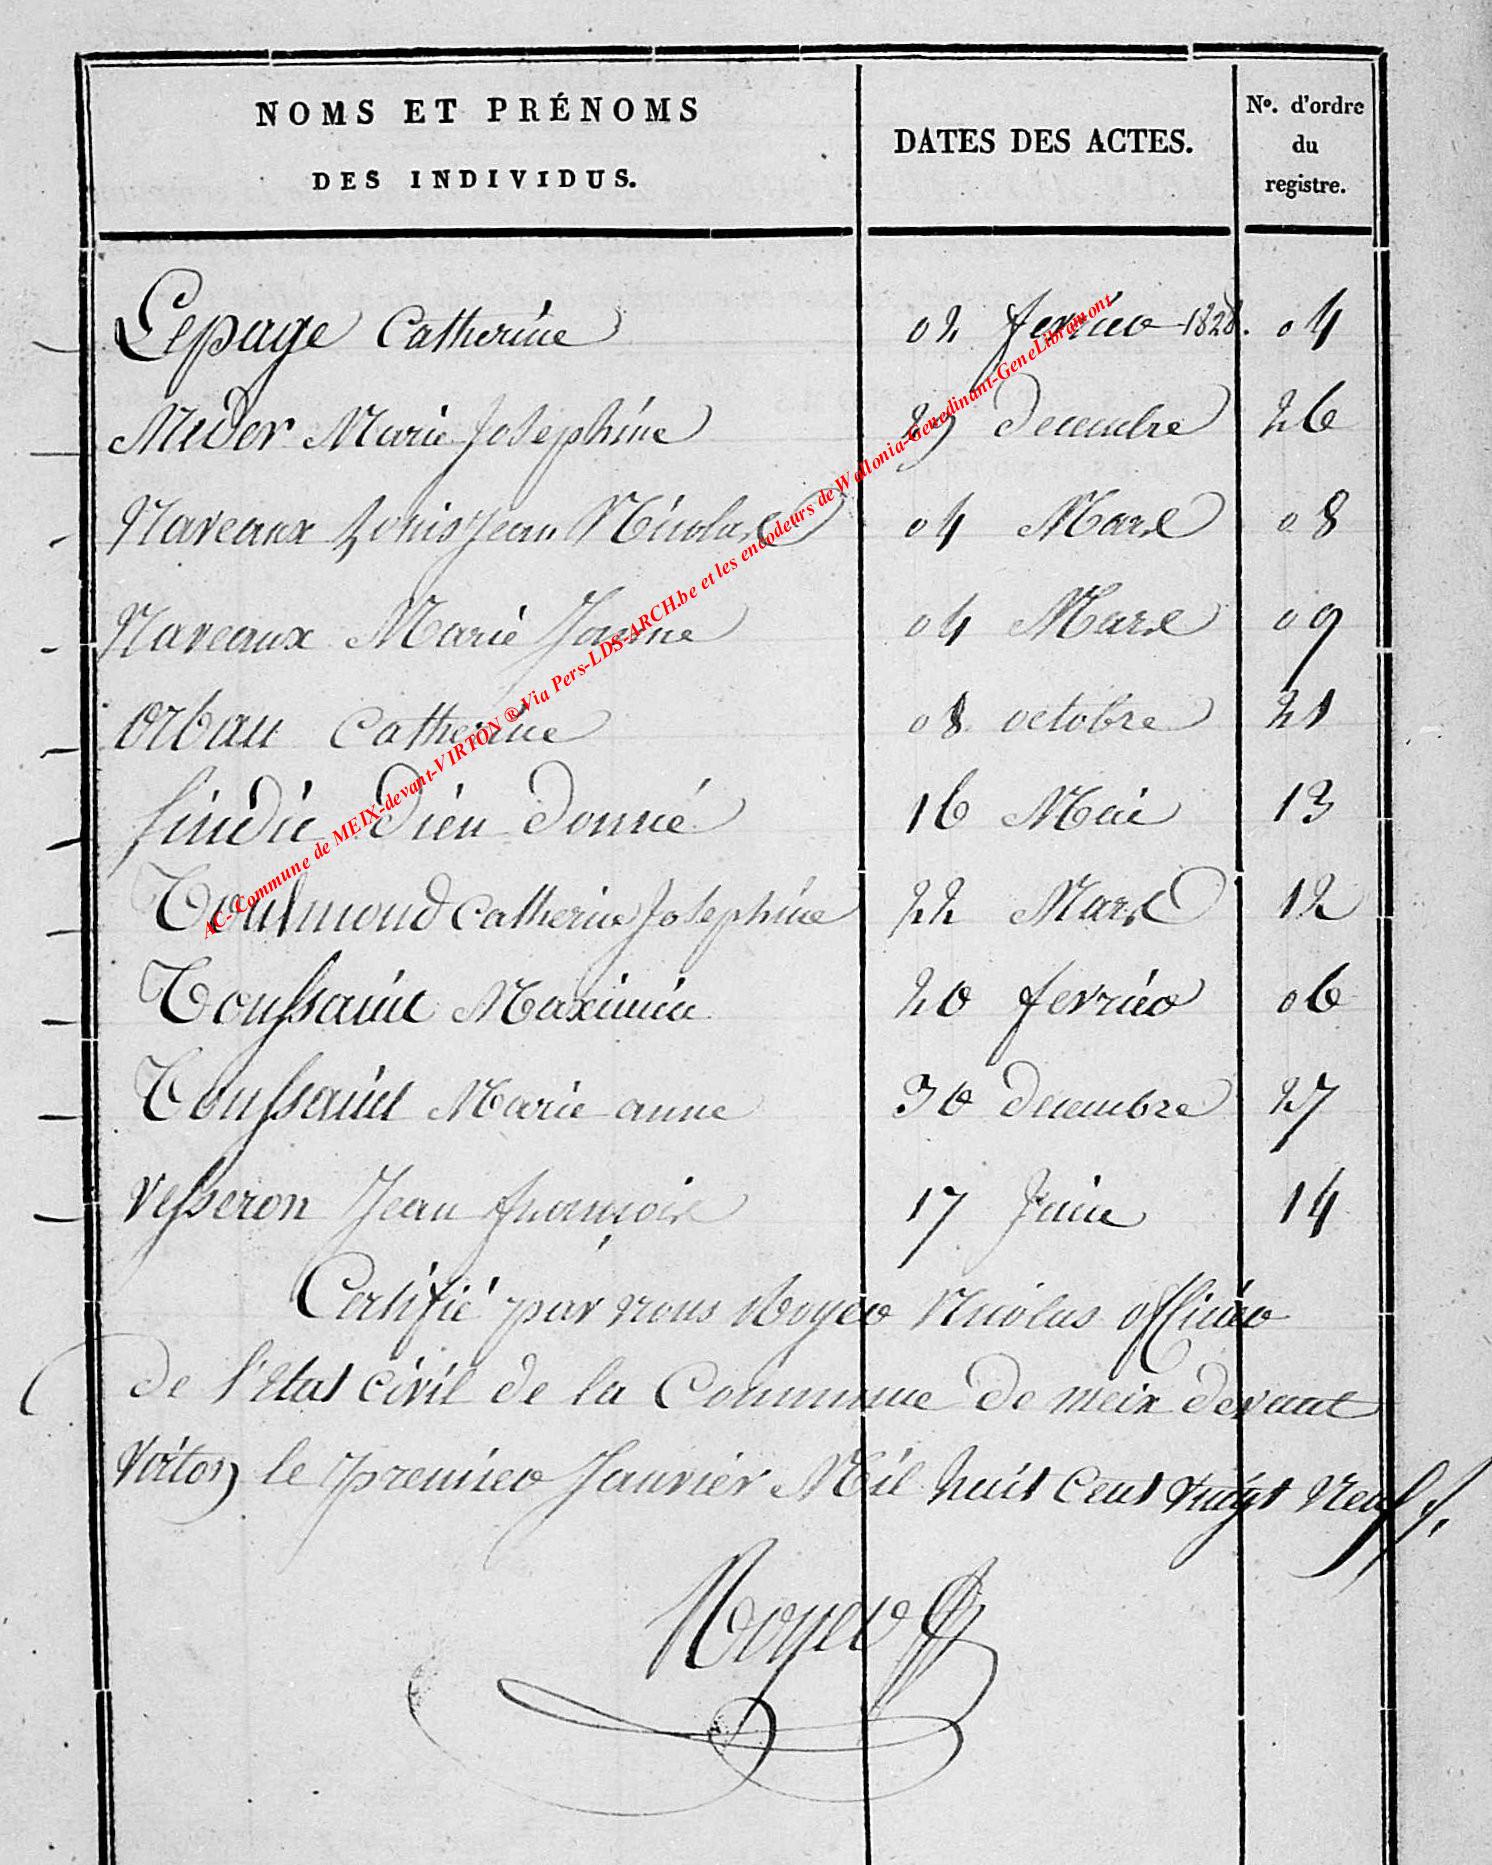 NOMS ET PRÉNOMS
DES INDIVIDUS.
DATES DES ACTES.
No. d'ordre
du
registre.
Lepage Catherine 02 fevrier 1828. 04
Meder Marie Josephine 29 decembre 26
Naveaux Louis Jean Nicolas 04 Mars 08
Naveaux Marie Jeanne 04 Mars 09
Orban Catherine 08 octobre 21
Sindic Dieu donné 16 Mai 13
Toulmond Catherine Josephine 22 Mars 12
Toussaint Maximin 20 fevrier 06
Toussaint Marie anne 30 decembre 27
Vesseron Jean françois 17 Juin 14
Certifié par nous Noyer Nicolas officier
de l'etat civil de la Commune de meix devant
Virton le premier Janvier Mil huit Cent vingt Neuf f.
Noyer
AC- Commune de MEIX-devant-VIRTON ® Via Pers-LDS-ARCH.be et les encodeurs de Wallonia-Genedinant-GeneLibramont